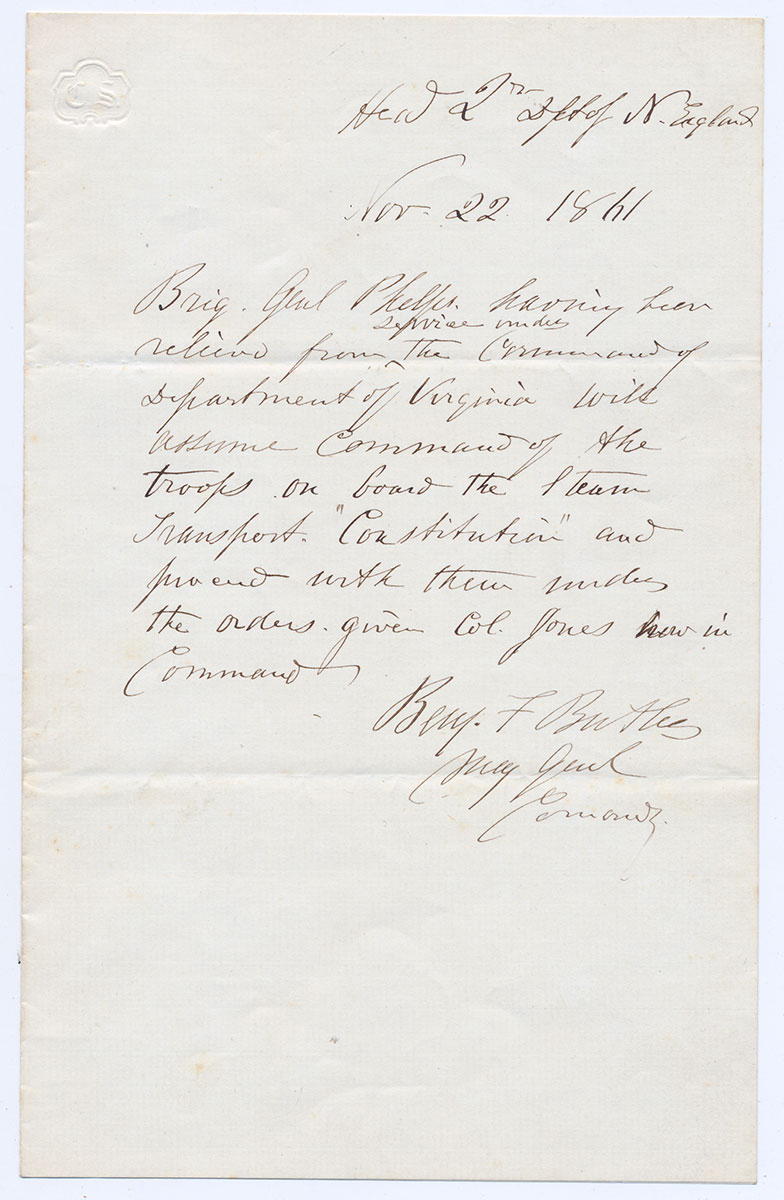 C.S.
Head Qrs Dpt of N. England
Nov. 22. 1861
Brig. Genl Phelps. having been
service under
relieved from the Command of
Department of Virginia will
assume Command of the
troops on board the Steam
Transport. "Constitution" and
proceed with them under
the orders. given Col. Jones now in
Command
Benj. F Butler
Maj Genl
Comandg.